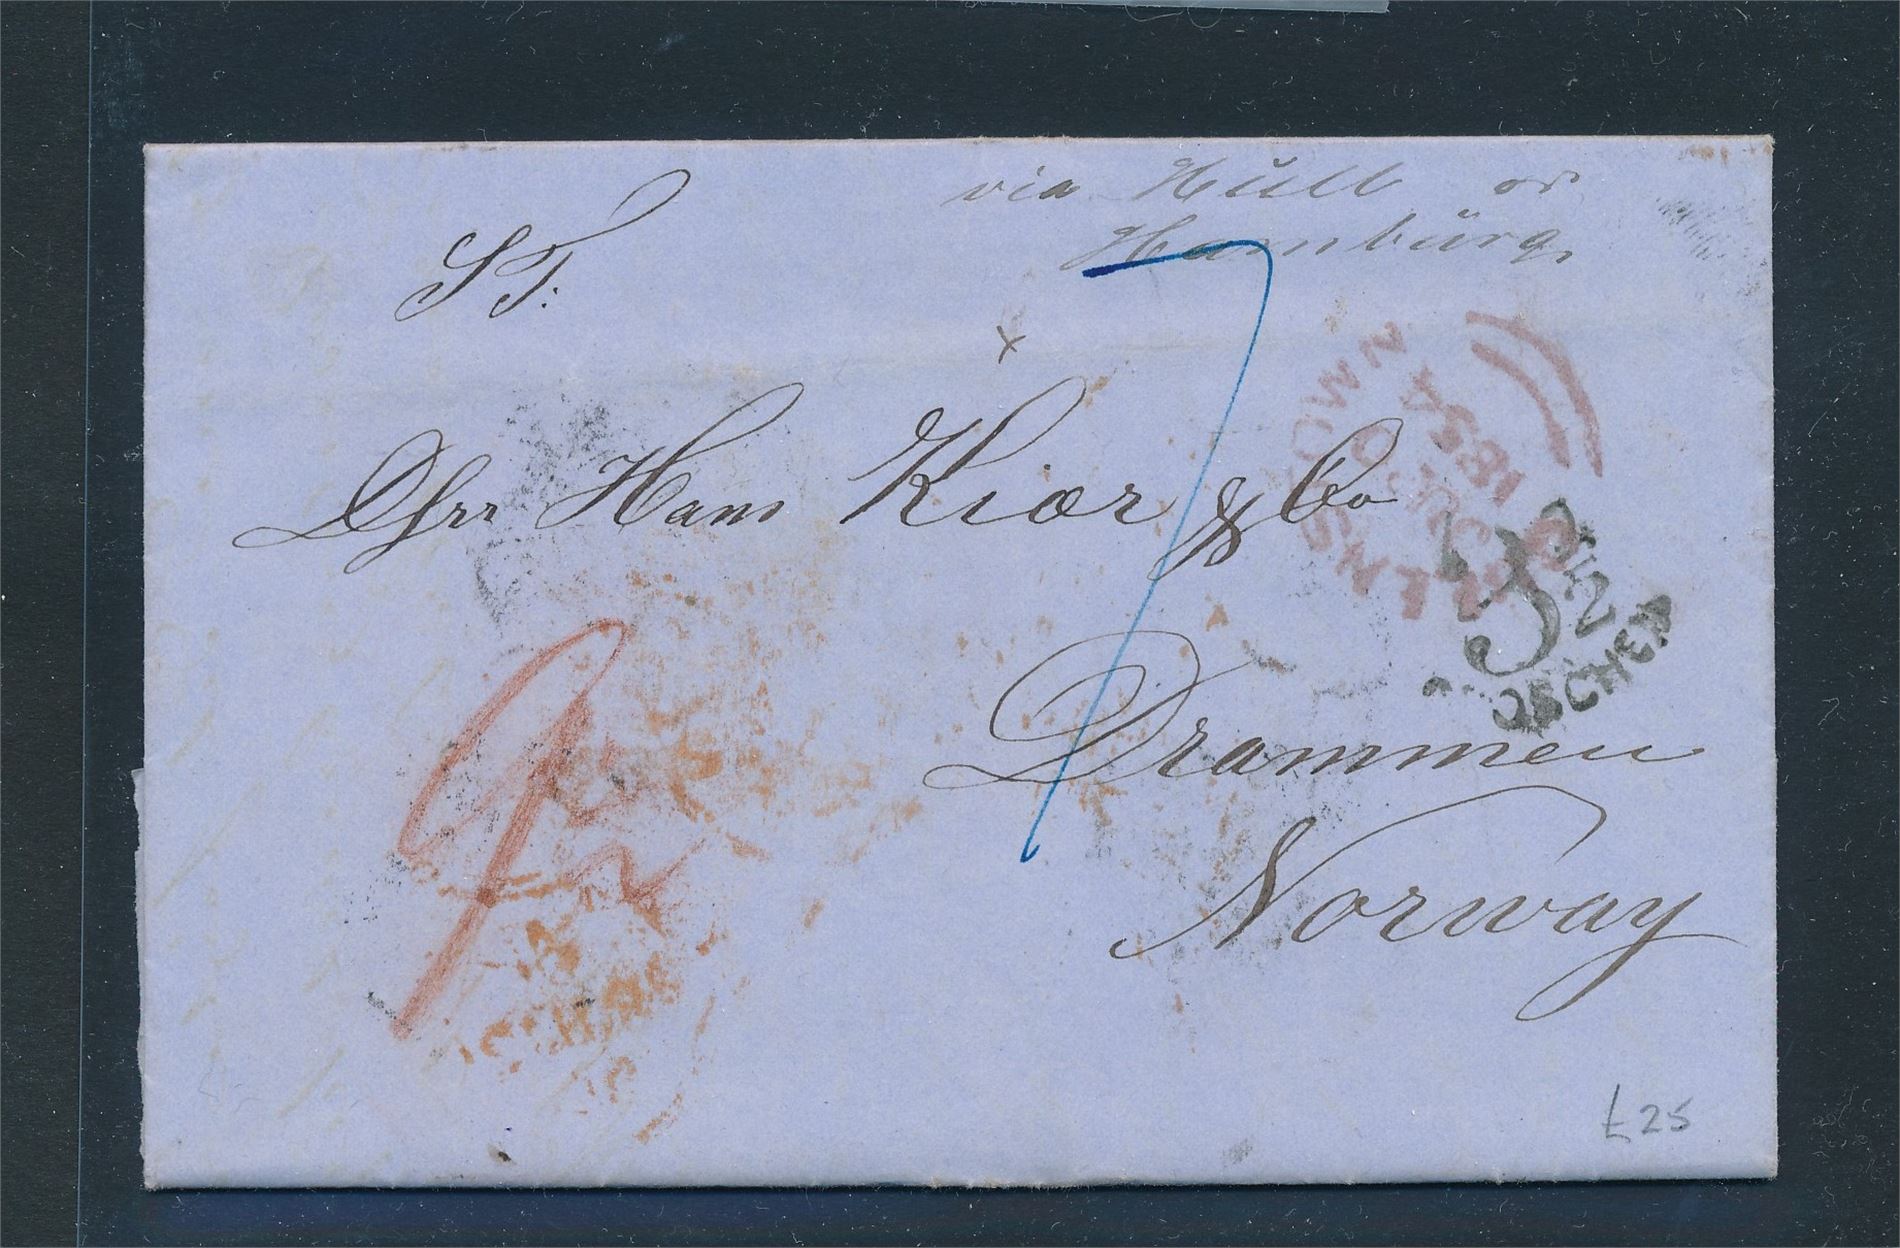 via Hull or
Hamburg.
S T:
x
7
Dhrr Hans Kiær & Co
Drammen
Norway
QUEENSTOWN
1854
£25